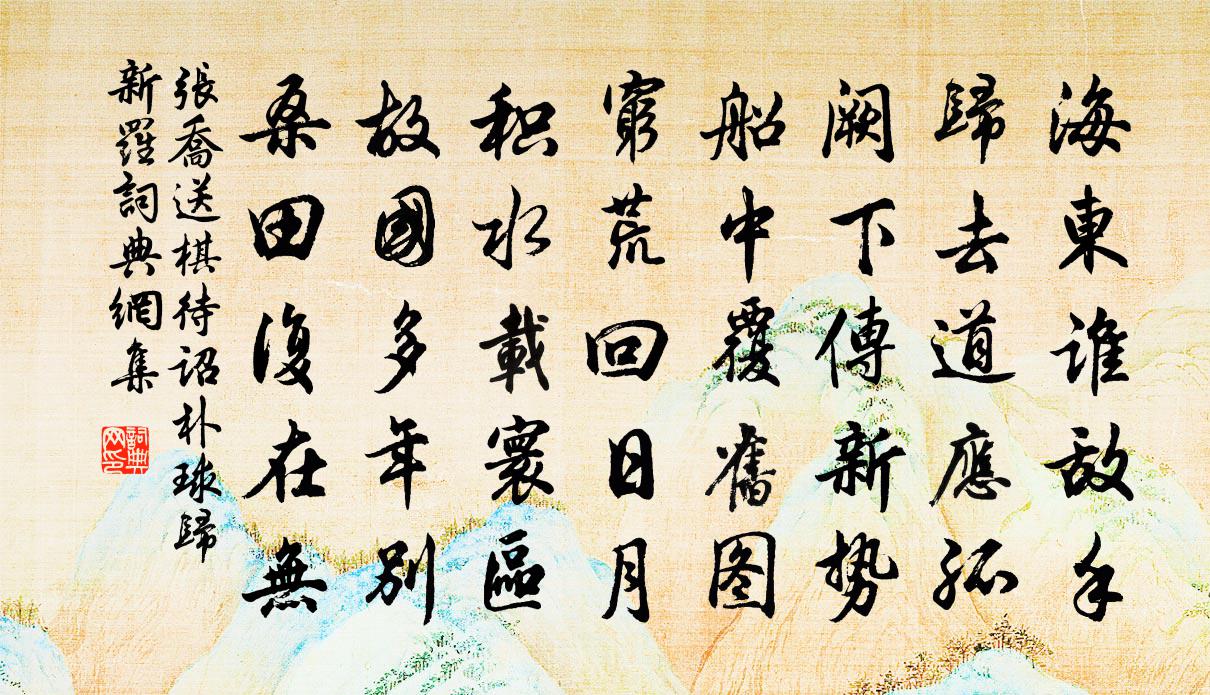 海東誰敵手
歸去道應孤
闕下傳新勢
船中覆舊图
窮荒回日月
积水載寰區
故國多年別
桑田復在無
張喬送棋待诏朴球歸
新羅詞典網集
詞典网印